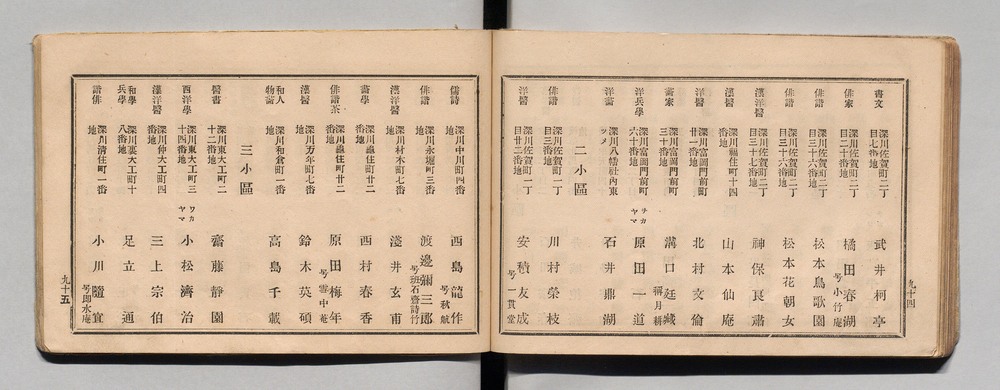 書文 深川佐賀町二丁目七番地 武井柯亭
俳家 深川佐賀町二丁目二十番地 橘田春湖 号小竹庵
俳諧 深川佐賀町二丁目三十六番地 松本鳥歌園
俳諧 深川佐賀町二丁目三十六番地 松本花朝女
漢洋醫 深川佐賀町二丁目三十七番地 神保良肅
漢醫 深川福住町十四番地 山本仙庵
洋醫 深川富岡門前町廿一番地 北村文倫
畵家 深川富岡門前町三十番地 溝口廷藏 月耕
洋兵學 深川富岡門前町六十番地 ヲカヤマ 原田一道
洋畵 深川八幡社內東ツ 石井鼎湖
二小區
俳諧 深川佐賀町一丁目三番地 川村榮枝
洋醫 深川佐賀町一丁目廿二番地 安積友成 号一貫堂
九十四
儒詩 深川中川町四番地 西島龍作 号秋航
俳諧 深川永堀町三番地 渡邊彌三郎 号班石齋詩竹
漢洋醫 深川材木町七番地 淺井玄甫
畵學 深川龜住町廿二番地 西村春香
俳諧茶 深川龜住町廿二番地 原田梅年 号雪中菴
漢醫 深川万年町七番地 鈴木英碩
和人物畵 深川和倉町一番地 高島千載
三小區
醫書 深川東大工町二十二番地 齋藤靜園
西洋學 深川東大工町三十四番地 ワカヤマ 小松濟治
漢洋醫 深川仲大工町四番地 三上宗伯
和學兵學 深川裏大工町十八番地 足立通
諧俳 深川淸住町一番地 小川隨宜 号即水庵
九十五